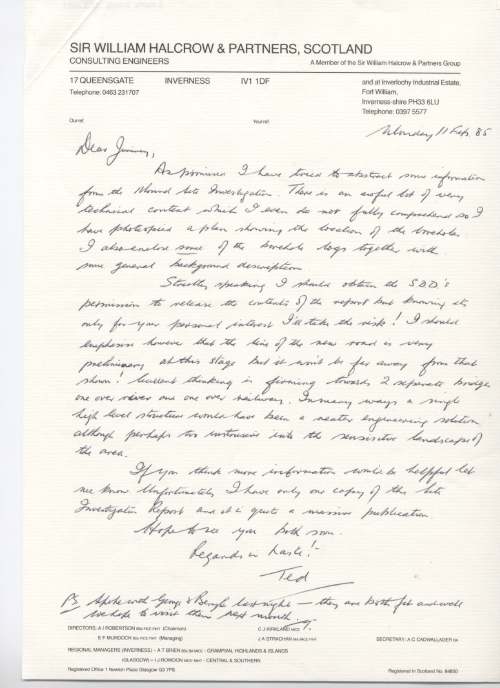 SIR WILLIAM HALCROW & PARTNERS, SCOTLAND
CONSULTING ENGINEERS
A Member of the Sir William Halcrow & Partners Group
17 QUEENSGATE INVERNESS IV1 1DF
Telephone: 0463 231707
and at Inverlochy Industrial Estate,
Fort William,
Inverness-shire PH33 6LU
Telephone: 0397 5577
Our ref: Your ref:
Monday 11 Feb. 85
Dear Jimmy,
As promised I have tried to abstract some information
from the Site Investigation. There is an awful lot of very
technical content which I even do not fully comprehend so I
have photocopied a plan showing the location of the boreholes.
I also enclose some of the borehole logs together with
some general background description.
Strictly speaking I should obtain the S.D.D's
permission to release the contents of the report but knowing its
only for your personal interest I'll take the risk! I should
emphasise however that the line of the new road is very
preliminary at this stage but it won't be far away from that
shown! Current thinking is firming towards 2 separate bridges
one over river and one over railway. In many ways a single
high level structure would have been a neater engineering solution
although perhaps too intrusive into the sensitive landscape of
the area.
If you think more information would be helpful let
me know. Unfortunately I have only one copy of this Site
Investigation Report and it is quite a massive publication.
Hope to see you both soon.
Regards in haste!
Ted
PS Spoke with George & Beryl last night — they are both fit and well
we hope to visit them next month.
DIRECTORS: A I ROBERTSON BSc FICE FIHT (Chairman) C J KIRKLAND
E P MURDOCH BSc FICE FIHT (Managing) J A STRACHAN
SECRETARY: A C CADWALLADER
REGIONAL MANAGERS: (INVERNESS) - A T BRIEN - GRAMPIAN, HIGHLANDS & ISLANDS
(GLASGOW) - I J RONDON - CENTRAL & SOUTHERN
Registered Office 1 Newton Place Glasgow G3 7PS Registered in Scotland No. 84800